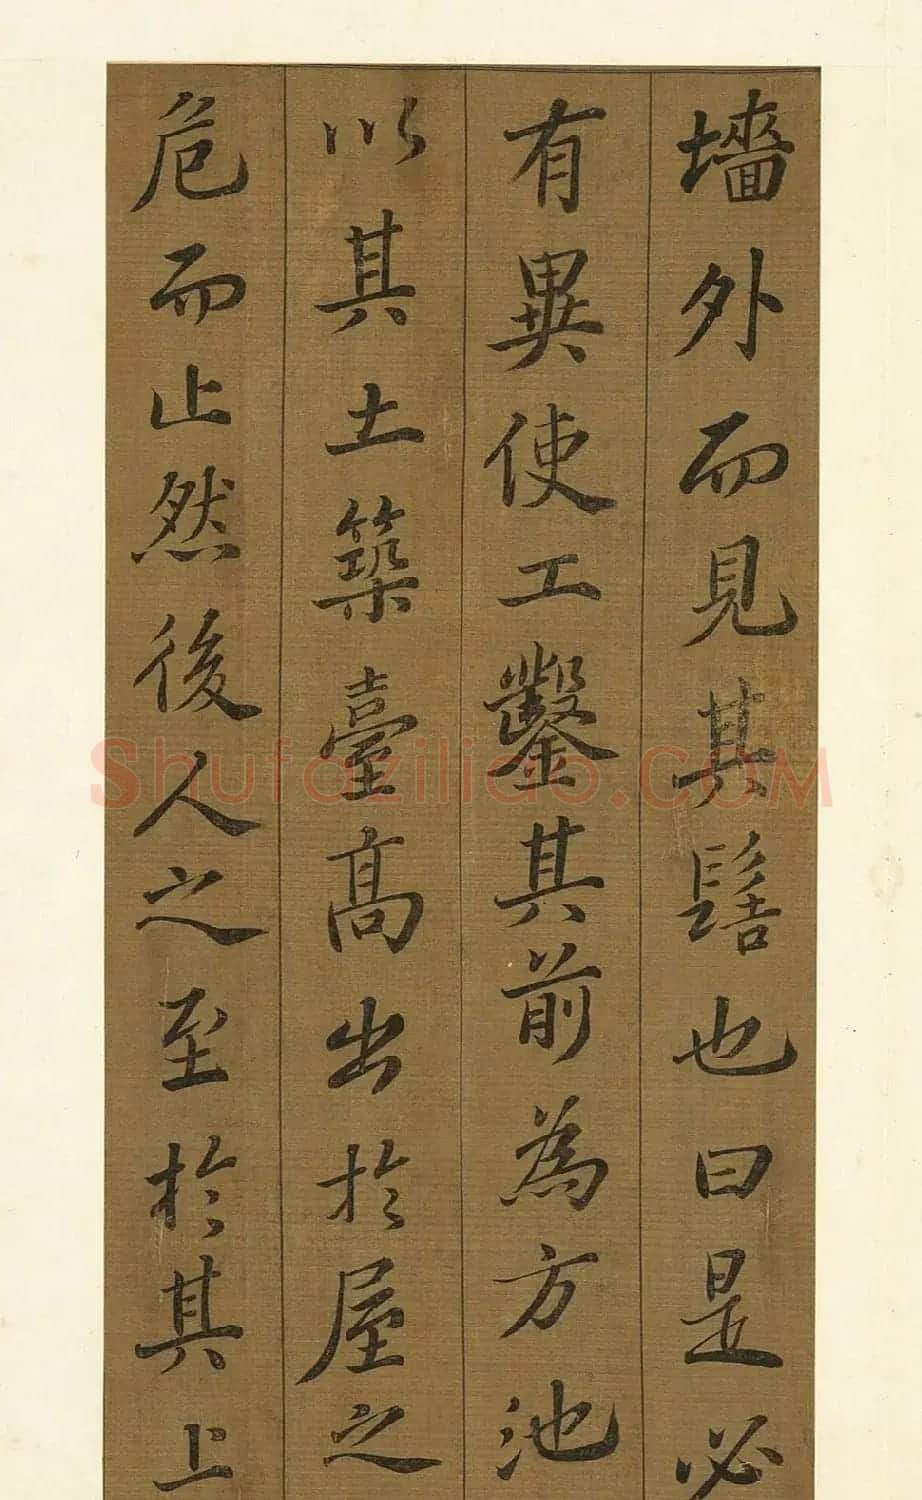 墻外而見其髻也曰是必
有異使工鑿其前為方池
以其土築臺高出於屋之
危而止然後人之至於其上
Shufaziliao.COM